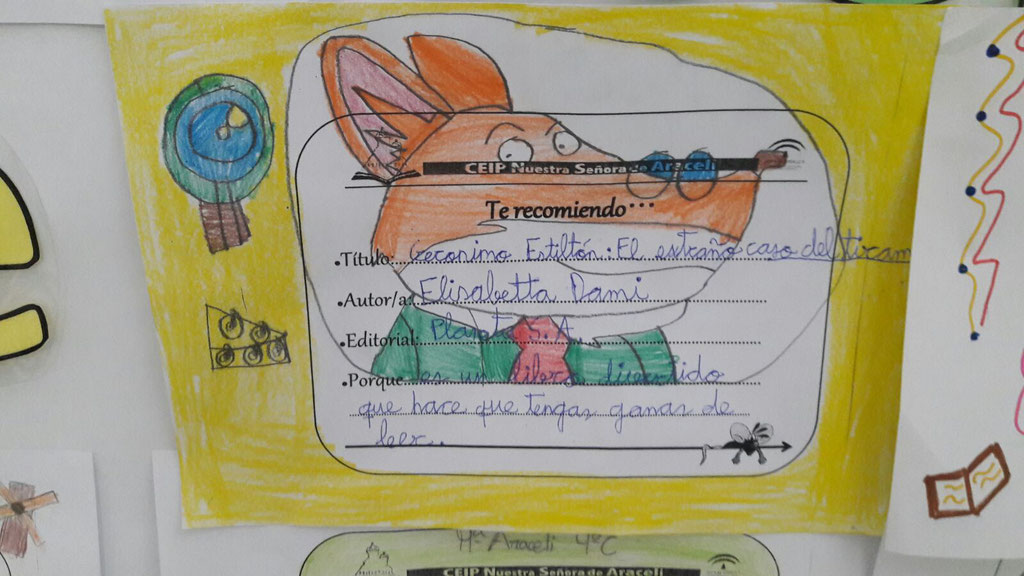 CEIP Nuestra Señora de Araceli
Te recomiendo...
•Título: Geronimo Estiltón: El estraño caso del tiram
•Autor/a: Elisabetta Dami
•Editorial: S.A.
•Porque es un libro divertido
que hace que tengas ganas de
leer.
Mª Araceli 4ºC
CEIP Nuestra Señora de Araceli